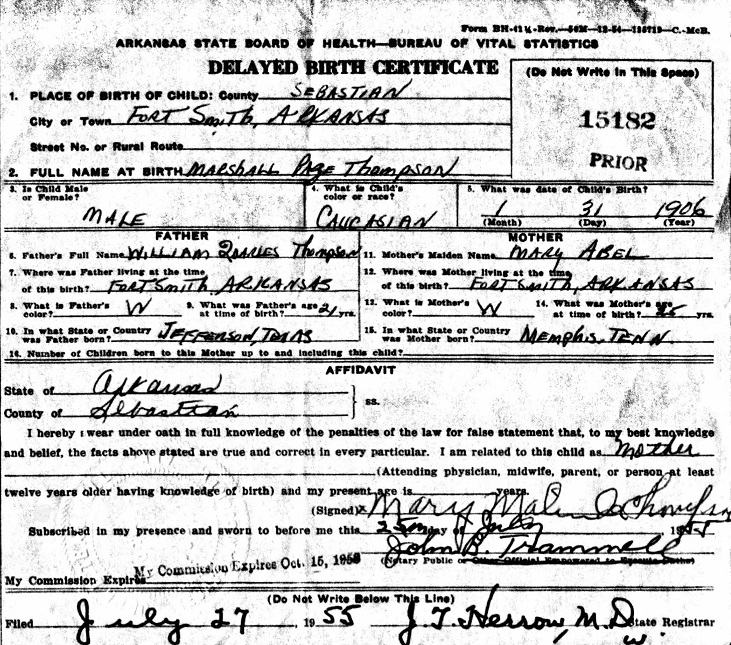 Form BH-41½-Rev.-50M-12-54-135719-C.-McB.
ARKANSAS STATE BOARD OF HEALTH—BUREAU OF VITAL STATISTICS
DELAYED BIRTH CERTIFICATE
(Do Not Write in This Space)
15182
PRIOR
1. PLACE OF BIRTH OF CHILD: County SEBASTIAN
City or Town FORT SMITH, ARKANSAS
Street No. or Rural Route
2. FULL NAME AT BIRTH MARSHALL PAGE THOMPSON
3. Is Child Male or Female? MALE
4. What is Child's color or race? CAUCASIAN
5. What was date of Child's Birth? 1 31 1906
(Month) (Day) (Year)
FATHER
6. Father's Full Name WILLIAM QUARLES THOMPSON
7. Where was Father living at the time of this birth? FORT SMITH, ARKANSAS
8. What is Father's color? W 9. What was Father's age at time of birth? 21 yrs.
10. In what State or Country was Father born? JEFFERSON, TEXAS
MOTHER
11. Mother's Maiden Name MARY ABEL
12. Where was Mother living at the time of this birth? FORT SMITH, ARKANSAS
13. What is Mother's color? W 14. What was Mother's age at time of birth? yrs.
15. In what State or Country was Mother born? MEMPHIS, TENN.
16. Number of Children born to this Mother up to and including this child?
AFFIDAVIT
State of Arkansas
County of Sebastian ss.
I hereby swear under oath in full knowledge of the penalties of the law for false statement that, to my best knowledge
and belief, the facts above stated are true and correct in every particular. I am related to this child as Mother
(Attending physician, midwife, parent, or person at least
twelve years older having knowledge of birth) and my present age is years.
(Signed) X Mary Thompson
Subscribed in my presence and sworn to before me this 25 day of July, 1955
John B. Trammell
(Notary Public or Other Official Empowered to Execute Oaths)
My Commission Expires My Commission Expires Oct. 15, 1958
(Do Not Write Below This Line)
Filed July 27 1955 J. T. Herron, M.D. State Registrar
w.